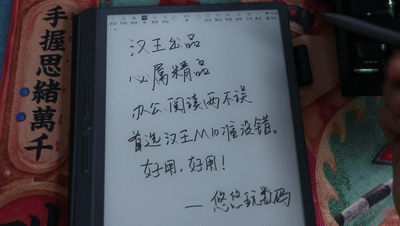 手握思緒萬千
汉王出品
必属精品
办公阅读两不误
首选汉王M10准没错。
好用，好用！
——悠悠玩数码